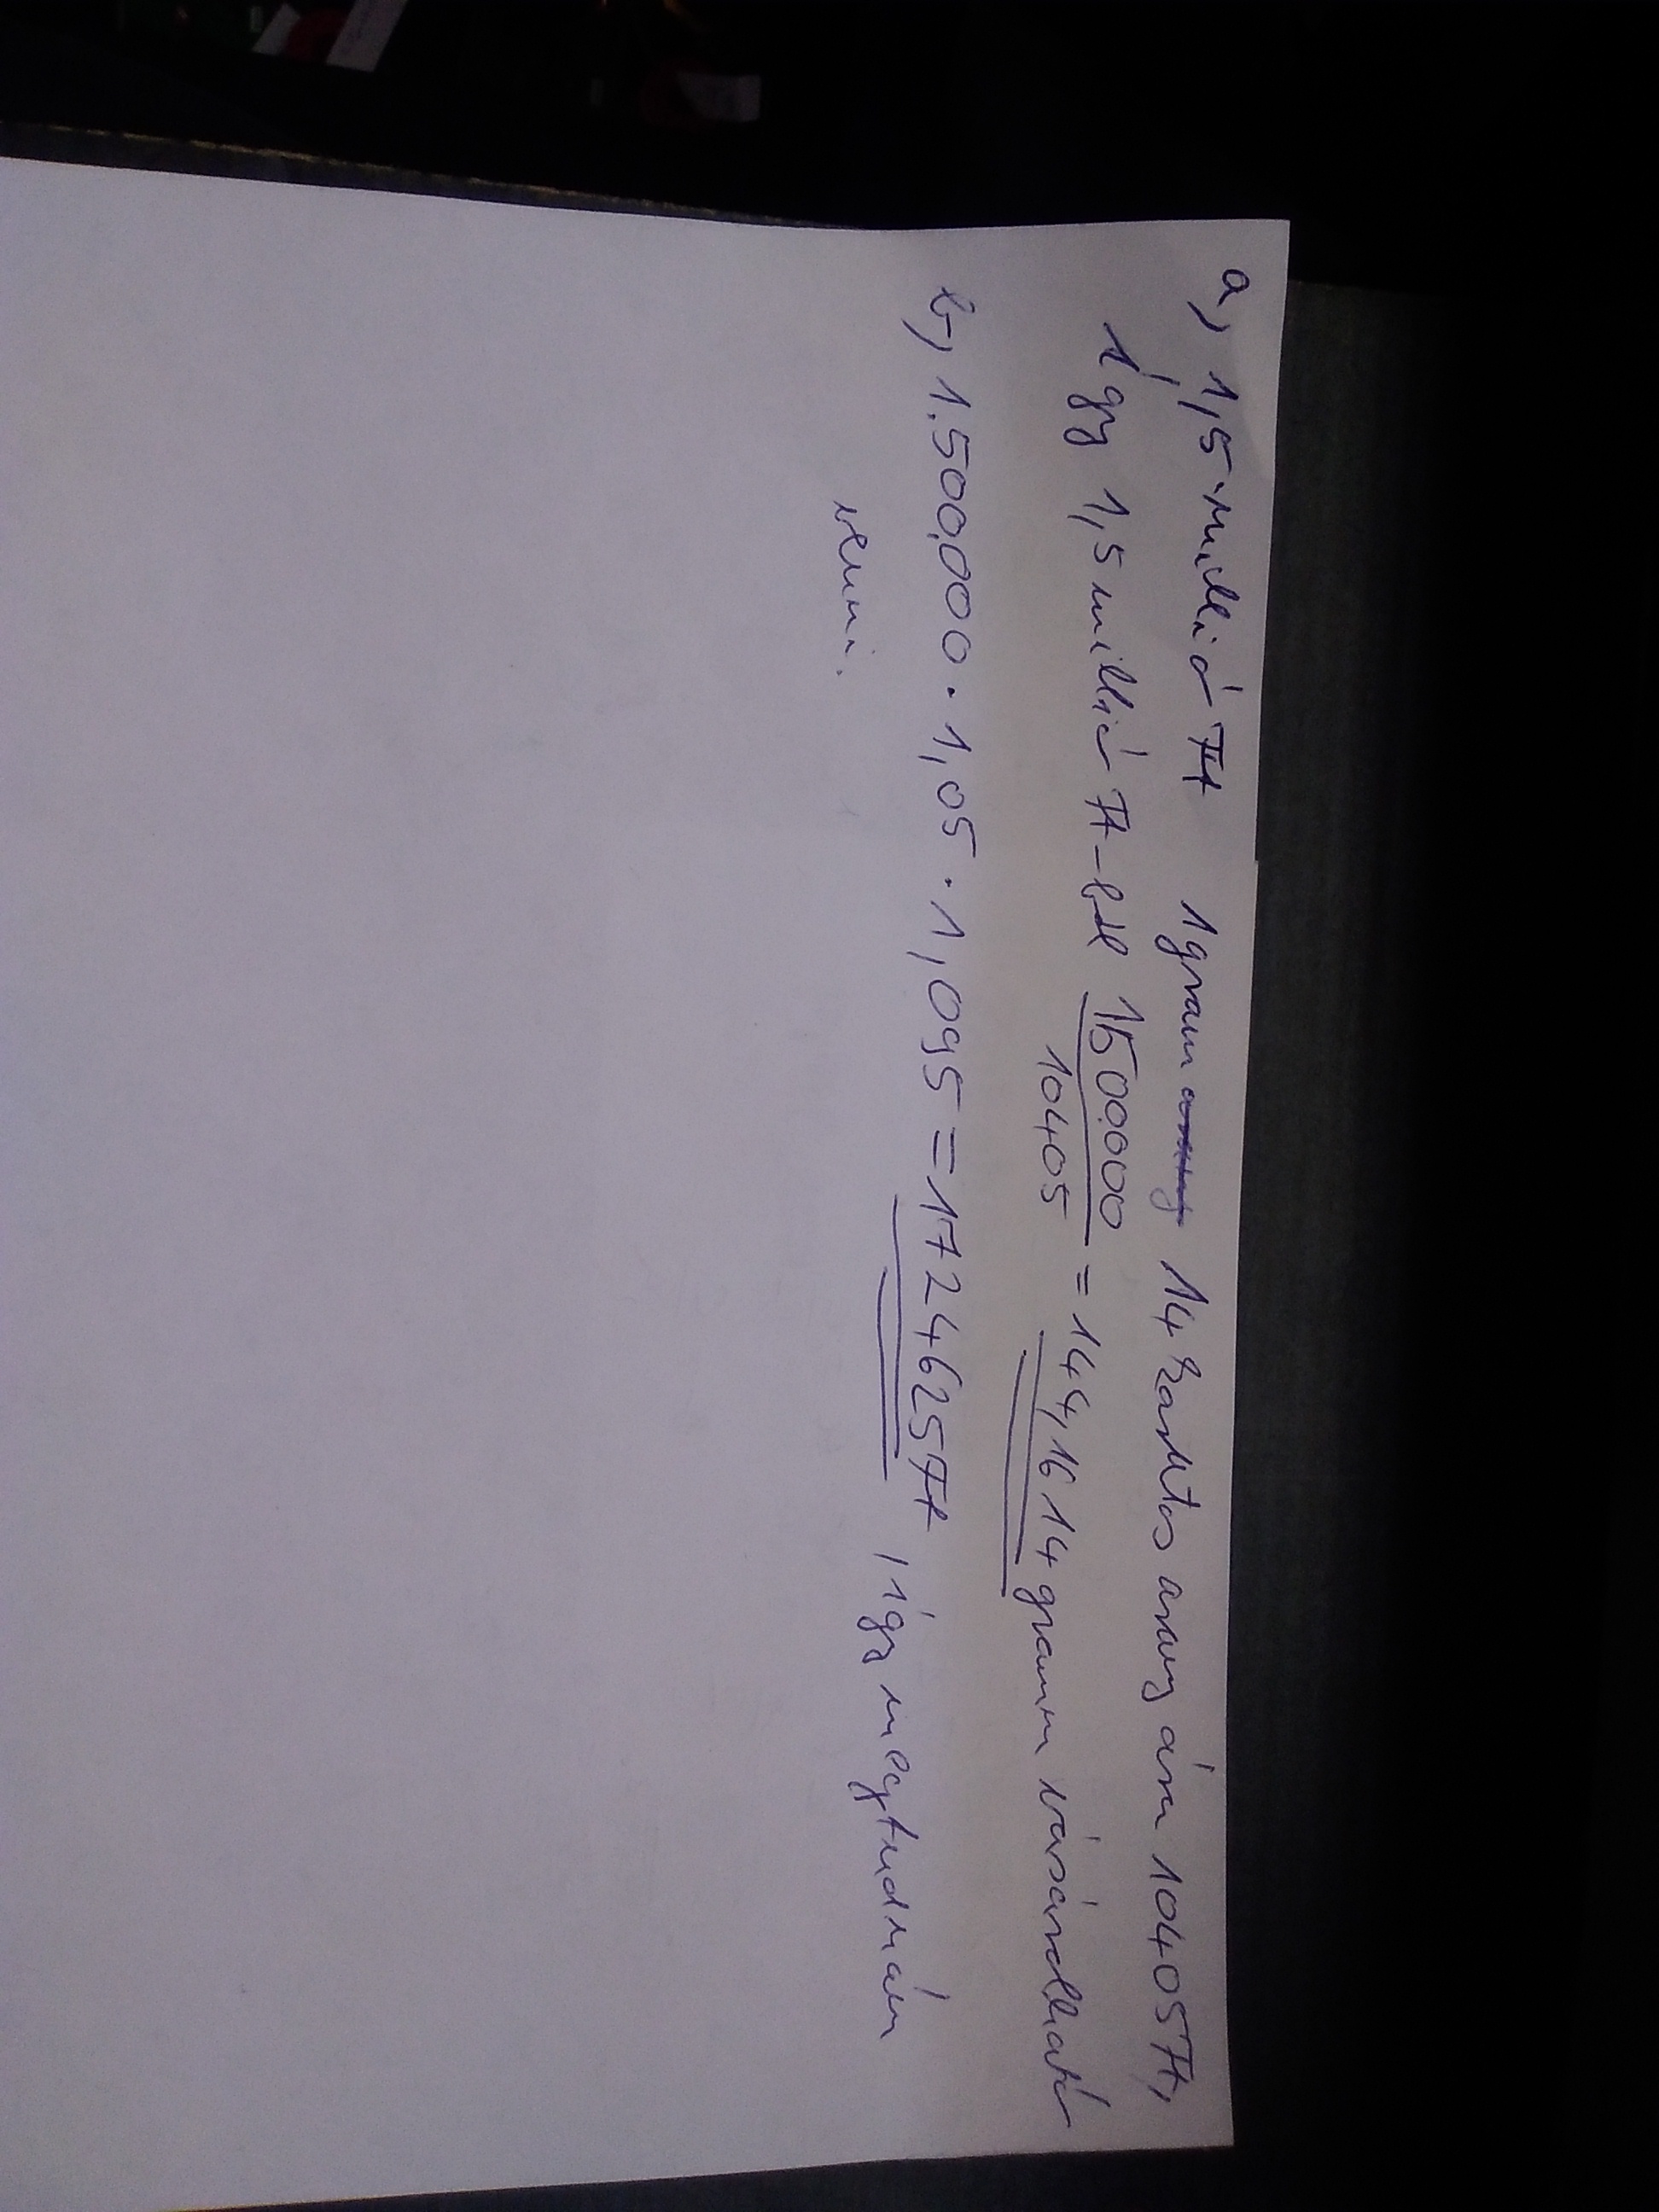 a, 1,5 millió Ft 1 gram arany 14 karátos arany ára 10405 Ft,
Így 1,5 millió Ft-ból 1500.000 / 10405 = 144,1614 gramm vásárolható
b, 1.500.000 · 1,05 · 1,095 = 1724625 Ft, így megtudnám
venni.